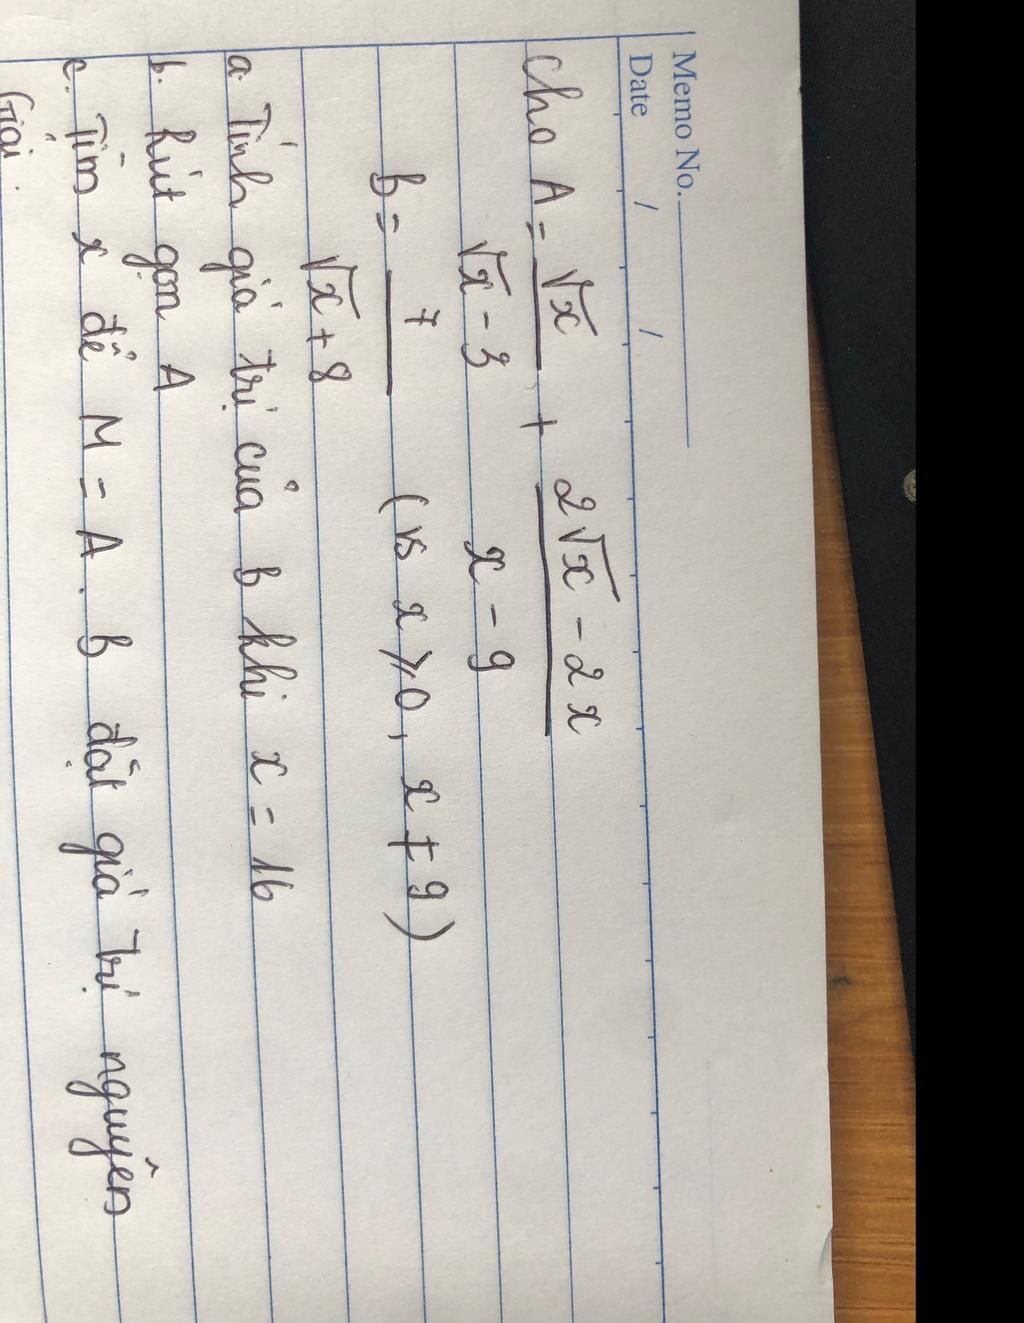 Memo No.
Date / /
Cho A = √x / (√x - 3) + (2√x - 2x) / (x - 9)
B = 7 / (√x + 8) (vs x ⩾ 0, x ≠ 9)
a. Tính giá trị của B khi x = 16
b. Rút gọn A
c. Tìm x để M = A . B đạt giá trị nguyên
Giải.